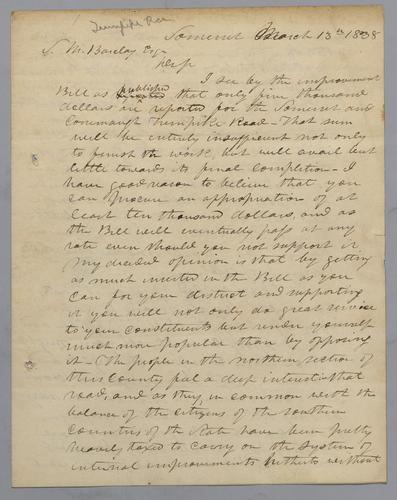 Turnpike Road
Somerset March 13th 1838
S. M. Barclay Esqr
I see by the improvement
Bill as published that only five thousand
dollars are reported for the Somerset and
Conemaugh Turnpike Road – That sum
will be entirely insufficient not only
to finish the work, but will avail but
little towards its final completion – I
have good reason to believe that you
can procure an appropriation of at
least ten thousand dollars, and as
the Bill will eventually pass at any
rate even should you not support it
my decided opinion is that by getting
as much inserted in the Bill as you
can for your district and supporting
it you will not only do great service
to your constituents but render yourself
much more popular than by opposing
it – The people in the northern section of
this County feel a deep interest in that
road, and as they in common with the
balance of the citizens of the southern
counties of the State have been pretty
heavily taxed to carry on the system of
internal improvements hitherto without